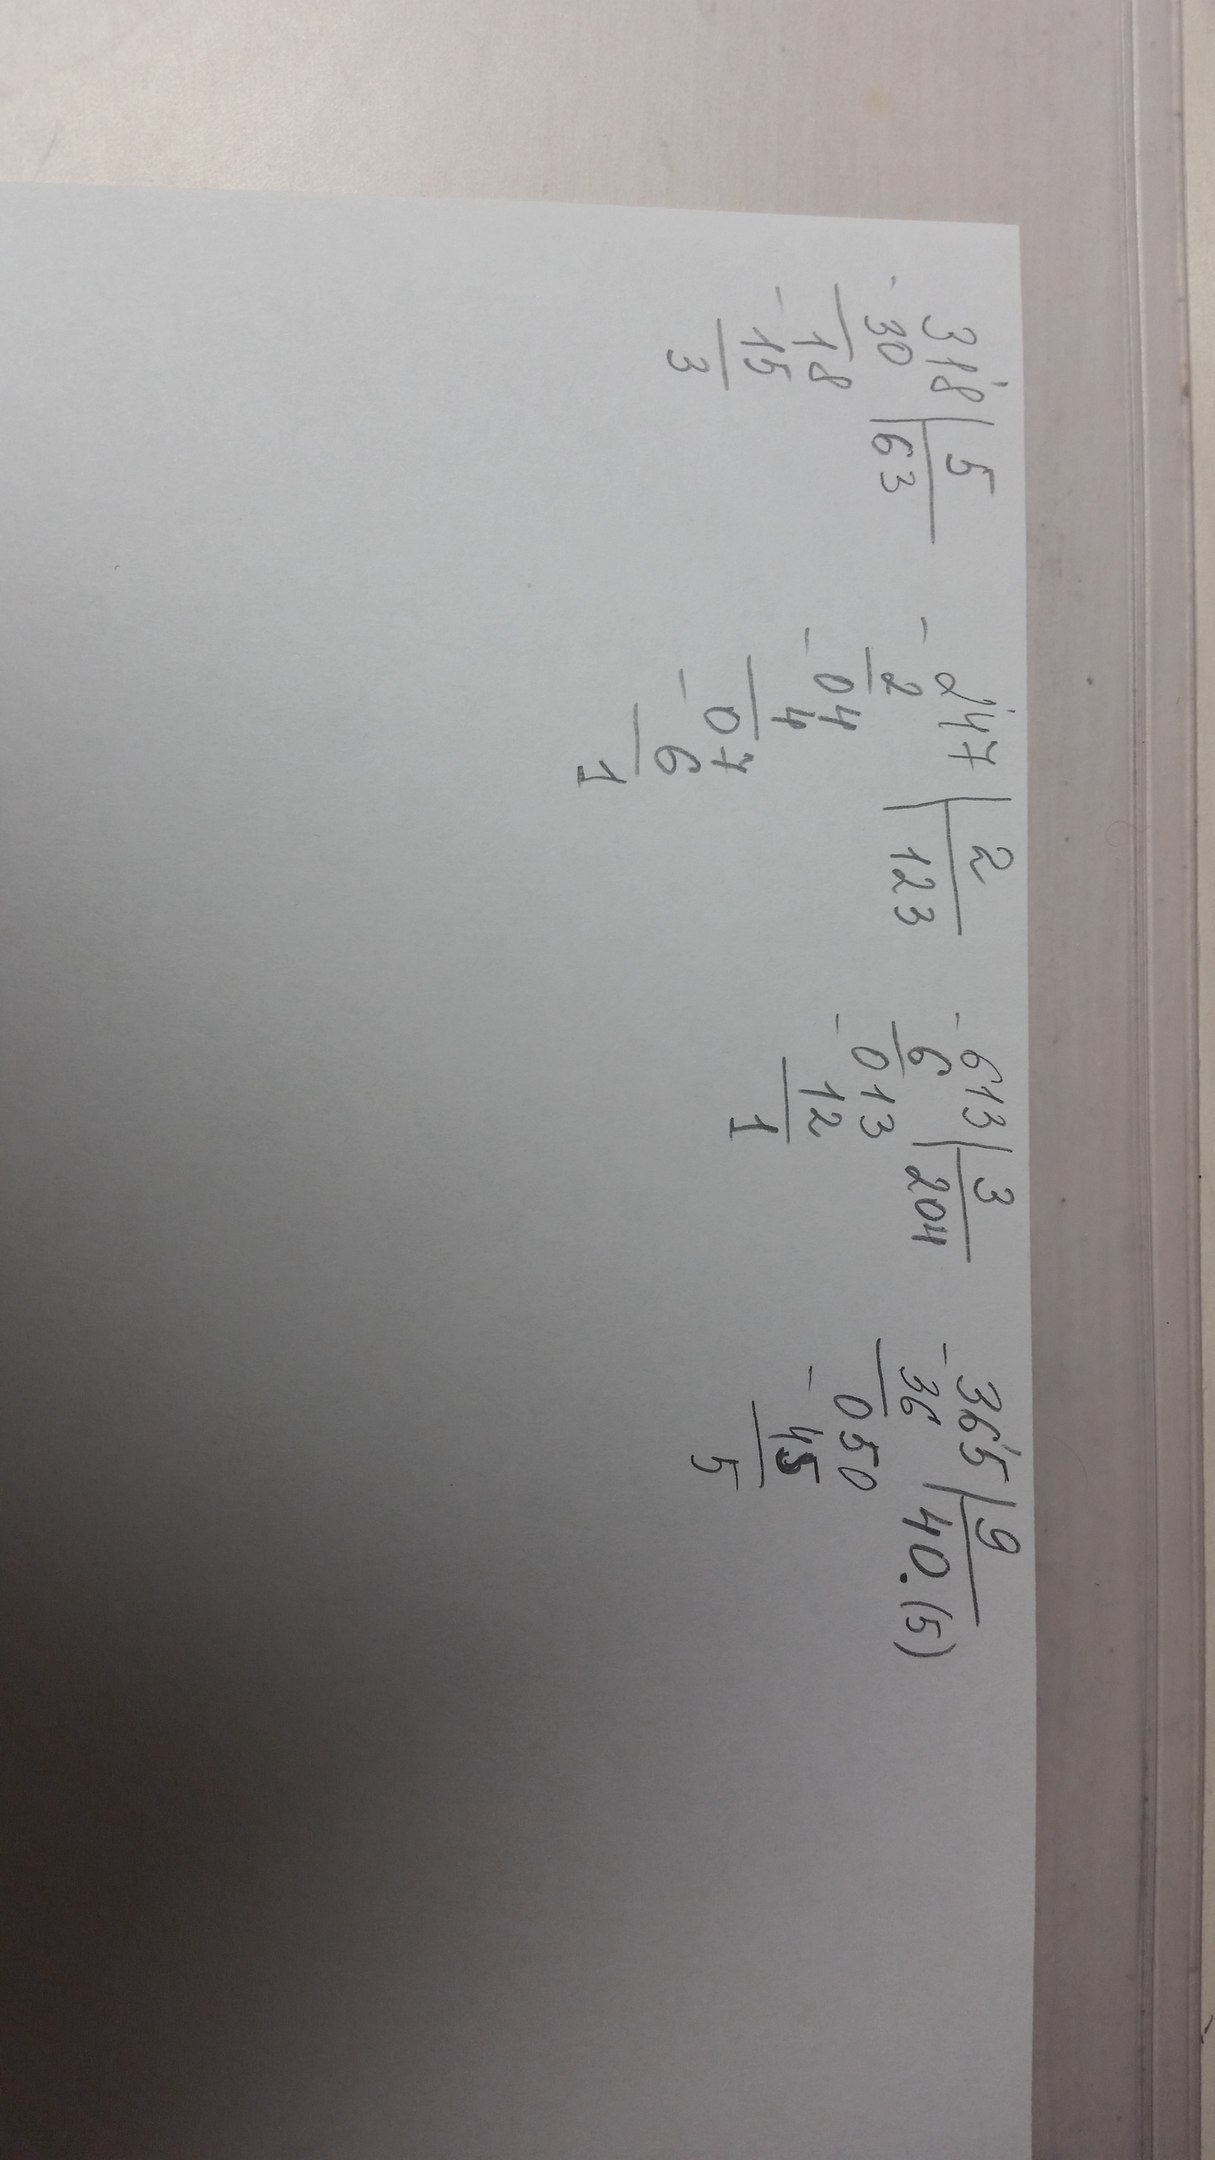 318 | 5
- 30 | 63
18
- 15
3
- 247 | 2
2 | 123
- 04
4
- 07
6
1
- 613 | 3
6 | 204
- 013
12
1
- 365 | 9
36 | 40.(5)
- 050
45
5